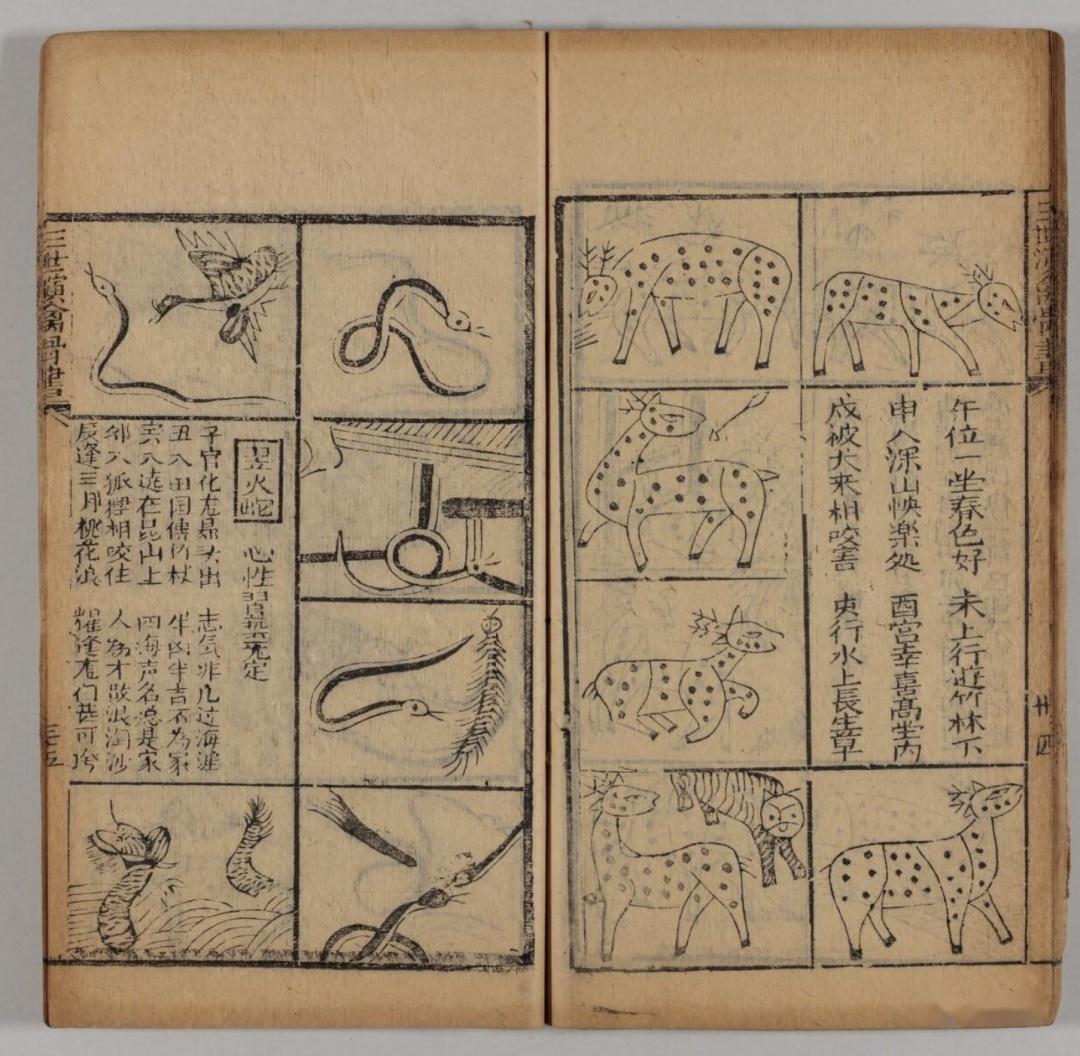 三世演禽
卅四
午位一坐春色好 未上行遊竹林下
申入深山快樂処 酉宮幸喜高堂内
戌被犬来相咬害 亥行水上長生草
翌火蛇 心性 无定
子宫化龙 头出 志气非凡过海涯
丑入田园傷 杖 半凶半吉不為家
寅入遶在昆山上 四海声名总是家
卯入狐狸相咬住 人為才散浪淘沙
辰逢三月桃花浪 龙门甚可
三世演禽
三十五